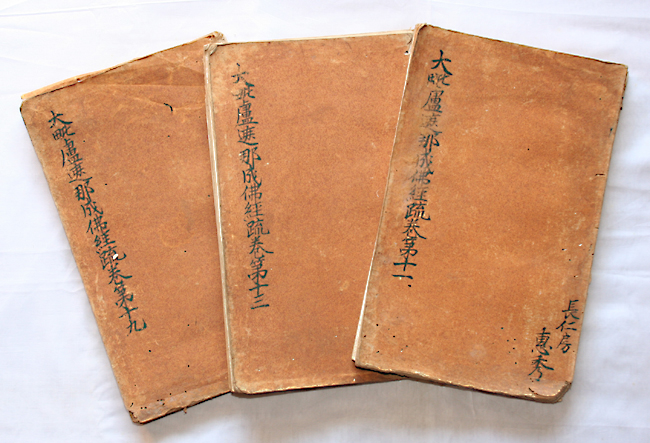 大毗盧遮那成佛經疏卷第十九
大毗盧遮那成佛經疏卷第十三
大毗盧遮那成佛經疏卷第十一
長仁房
惠秀